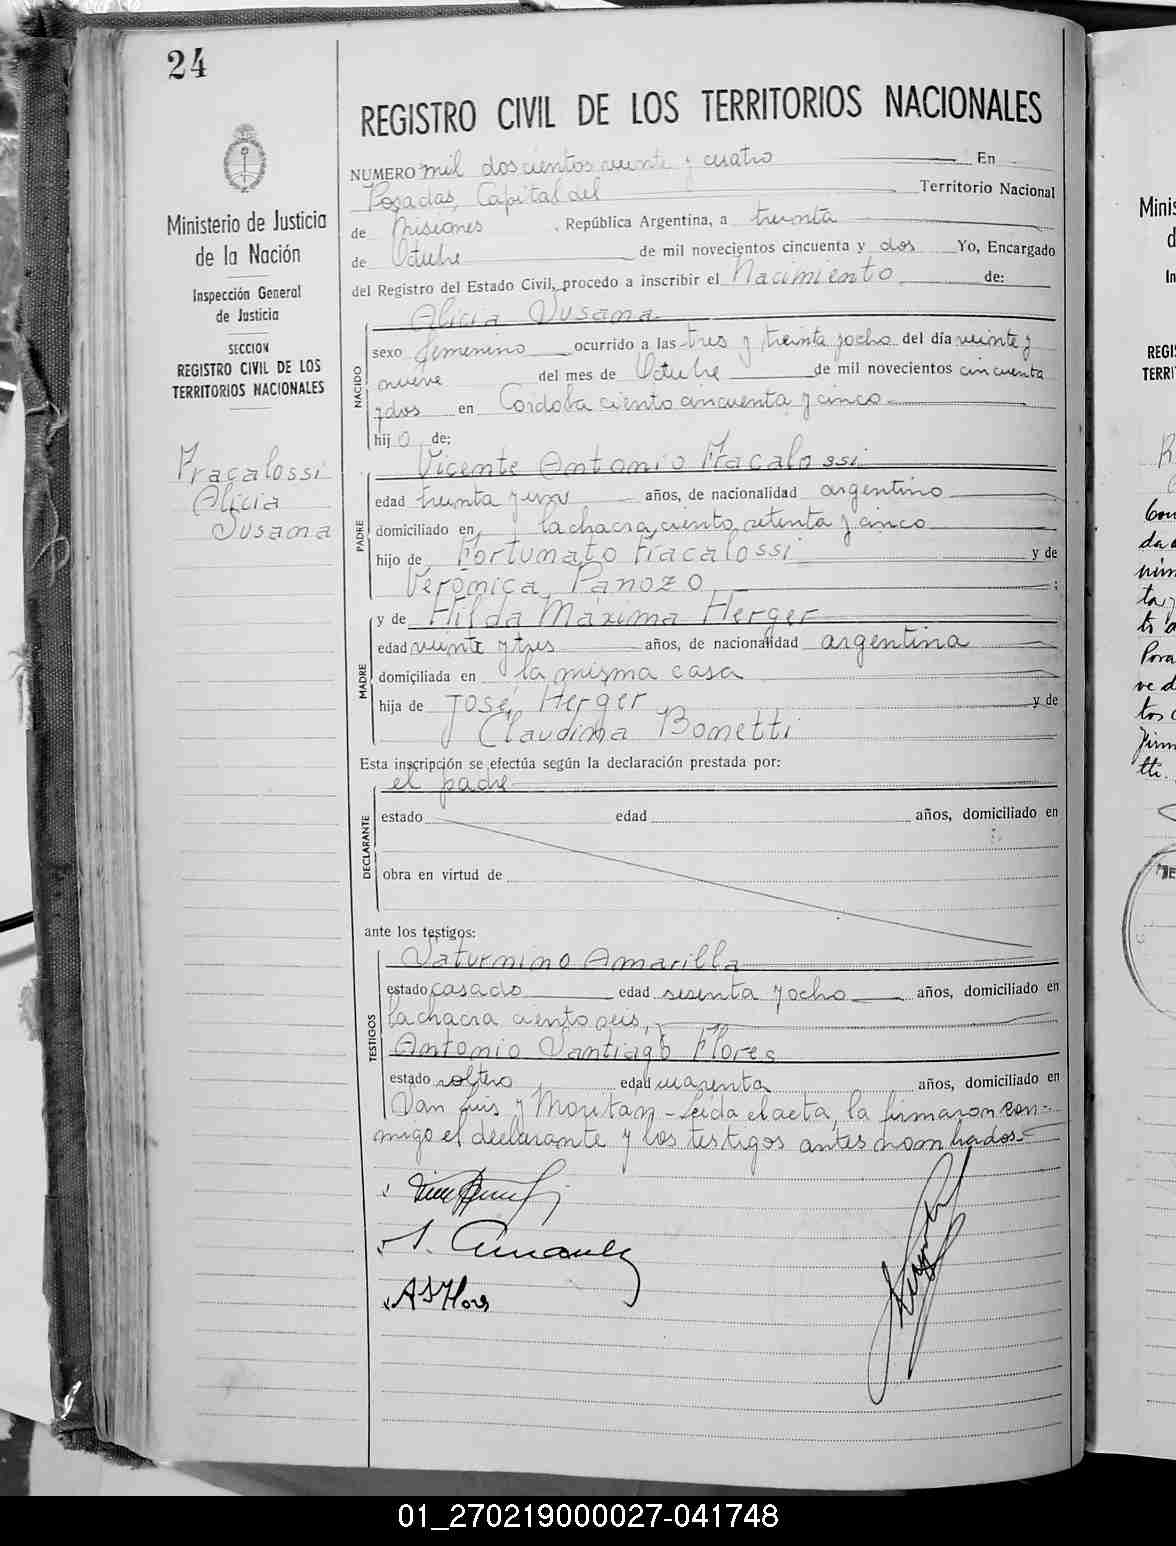 24
REGISTRO CIVIL DE LOS TERRITORIOS NACIONALES
Ministerio de Justicia
de la Nación
Inspección General
de Justicia
SECCION
REGISTRO CIVIL DE LOS
TERRITORIOS NACIONALES
Fracalossi
Alicia
Susana
NUMERO mil doscientos veinte y cuatro En
Posadas, Capital del Territorio Nacional
de Misiones, República Argentina, a treinta
de Octubre de mil novecientos cincuenta y dos Yo, Encargado
del Registro del Estado Civil, procedo a inscribir el Nacimiento de:
NACIDO
Alicia Susana
sexo femenino ocurrido a las tres y treinta y ocho del día veinte y
nueve del mes de Octubre de mil novecientos cincuenta
y dos en Córdoba ciento cincuenta y cinco
hij a de:
PADRE
Vicente Antonio Fracalossi
edad treinta y un años, de nacionalidad argentino
domiciliado en la chacra ciento setenta y cinco
hijo de Fortunato Fracalossi y de
Verónica Panozo ;
MADRE
y de Hilda Máxima Herger
edad veinte y tres años, de nacionalidad argentina
domiciliada en la misma casa
hija de José Herger y de
Claudina Bonetti
Esta inscripción se efectúa según la declaración prestada por:
DECLARANTE
el padre
estado edad años, domiciliado en
obra en virtud de
ante los testigos:
TESTIGOS
Saturnino Amarilla
estado casado edad sesenta y ocho años, domiciliado en
la chacra ciento seis,
Antonio Santiago Flores
estado soltero edad cuarenta años, domiciliado en
San Luis y Moritan - Leida el acta, la firmaron con-
migo el declarante y los testigos antes nombrados.-
A S Flores
Minis
d
In
REGI
TERRI
01_270219000027-041748